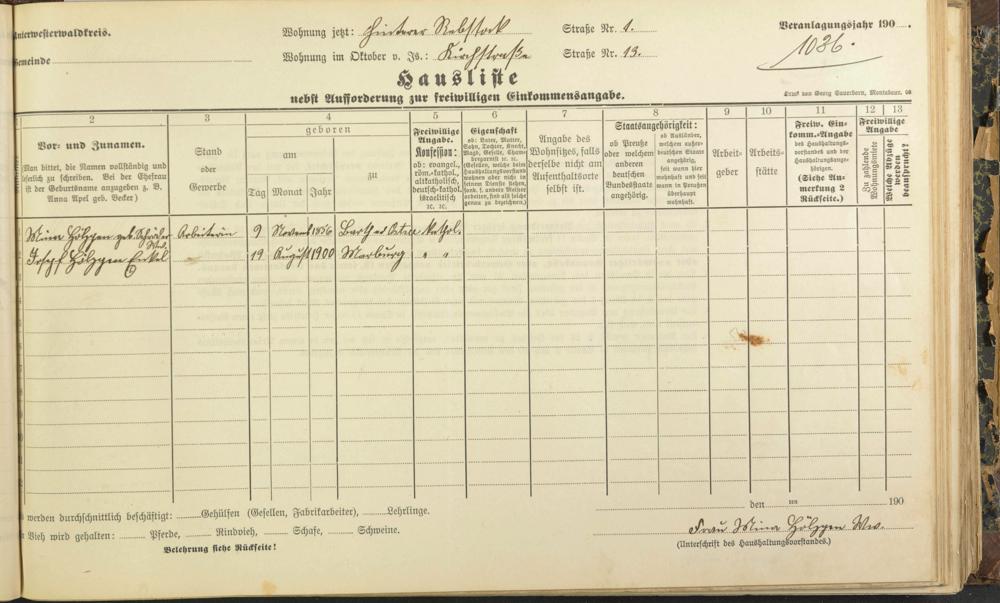 Unterwesterwaldkreis.
Gemeinde
Wohnung jetzt: Hinterer Rebstock Straße Nr. 1.
Wohnung im Oktober v. Js.: Kirchstraße Straße Nr. 13.
Veranlagungsjahr 190 .
1036.
Hausliste
nebst Aufforderung zur freiwilligen Einkommensangabe.
Druck von Georg Sauerborn, Montabaur.
2 3 4 5 6 7 8 9 10 11 12 13
Vor- und Zunamen.
Man bittet, die Namen vollständig und
leserlich zu schreiben. Bei der Ehefrau
ist der Geburtsname anzugeben z. B.
Anna Apel geb. Becker)
Stand
oder
Gewerbe
geboren
am
Tag Monat Jahr
zu
Freiwillige
Angabe.
Konfession:
ob: evangel.,
röm.-kathol.,
altkatholisch,
deutsch-kathol.
israelitisch
ec. ec.
Eigenschaft
ob: Vater, Mutter,
Sohn, Tochter, Knecht,
Magd, Geselle, Cham-
bergarnist ec. ec.
(Gesellen, welche beim
Haushaltungsvorstand
wohnen aber nicht in
seinem Dienste stehen,
sond. f. andere Meister
arbeiten, sind als solche
genau zu bezeichnen.)
Angabe des
Wohnsitzes, falls
derselbe nicht am
Aufenthaltsorte
selbst ist.
Staatsangehörigkeit:
ob Preuße
oder welchem
anderen
deutschen
Bundesstaate
angehörig.
ob Ausländer,
welchem außer-
deutschen Staate
angehörig,
seit wann hier
wohnhaft und seit
wann in Preußen
überhaupt
wohnhaft.
Arbeit-
geber
Arbeits-
stätte
Freiw. Ein-
komm.-Angabe
des Haushaltungs-
vorstandes und der
Haushaltungsange-
hörigen.
(Siehe An-
merkung 2
Rückseite.)
Freiwillige
Angabe
Zu zahlende
Wohnungsmiete
Welche Abzüge
werden
beansprucht?
Mina Hölzgen geb. Schröder Arbeiterin 9 Novemb 1856 Kathol.
Ww.
Josef Hölzgen Enkel 19 August 1900 Marburg " "
werden durchschnittlich beschäftigt: Gehülfen (Gesellen, Fabrikarbeiter), Lehrlinge.
Vieh wird gehalten: Pferde, Rindvieh, Schafe, Schweine.
Belehrung siehe Rückseite!
den ten 190
Frau Mina Hölzgen Ww.
(Unterschrift des Haushaltungsvorstandes.)